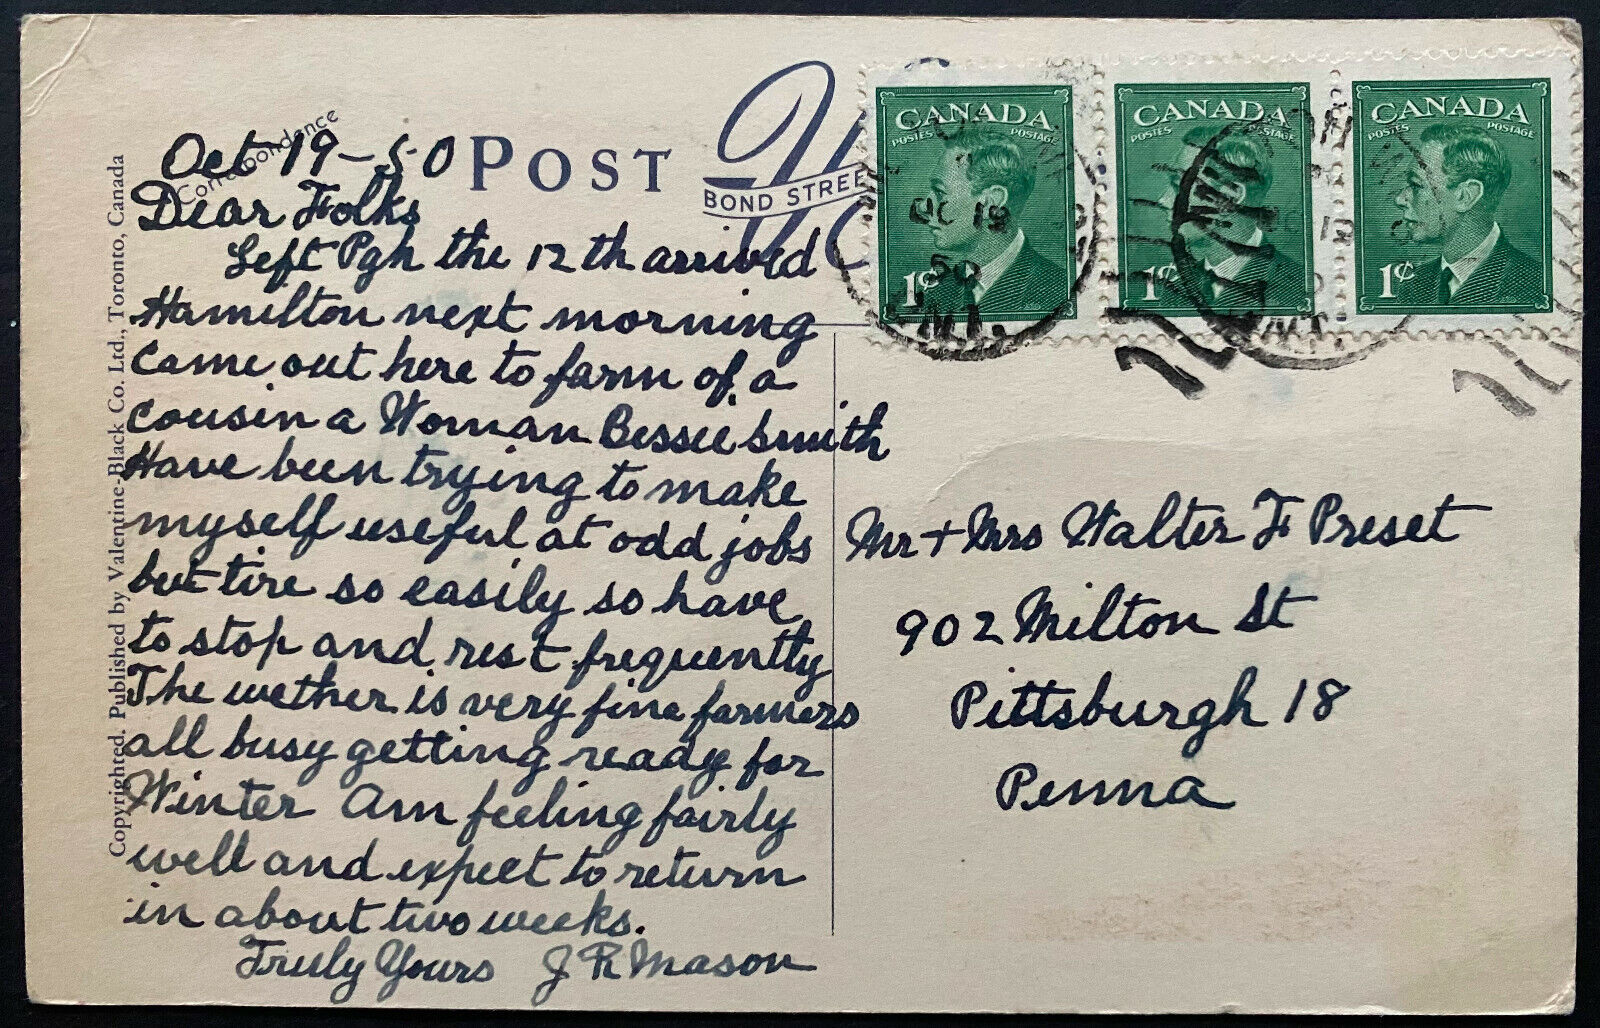 Correspondence
Oct-19-50
POST
BOND STREET
Dear Folks
Left Pgh the 12th arrived
Hamilton next morning
Came out here to farm of a
Cousin a Woman Bessie Smith
Have been trying to make
myself useful at odd jobs
but tire so easily so have
to stop and rest frequently
The wether is very fine farmers
all busy getting ready for
Winter Am feeling fairly
well and expect to return
in about two weeks.
Truly Yours J R Mason
Copyrighted. Published by Valentine-Black Co. Ltd., Toronto, Canada
CANADA
POSTES POSTAGE
1¢
CANADA
POSTES POSTAGE
1¢
CANADA
POSTES POSTAGE
1¢
OC 19
50
Mr + Mrs Walter F Preset
902 Milton St
Pittsburgh 18
Penna